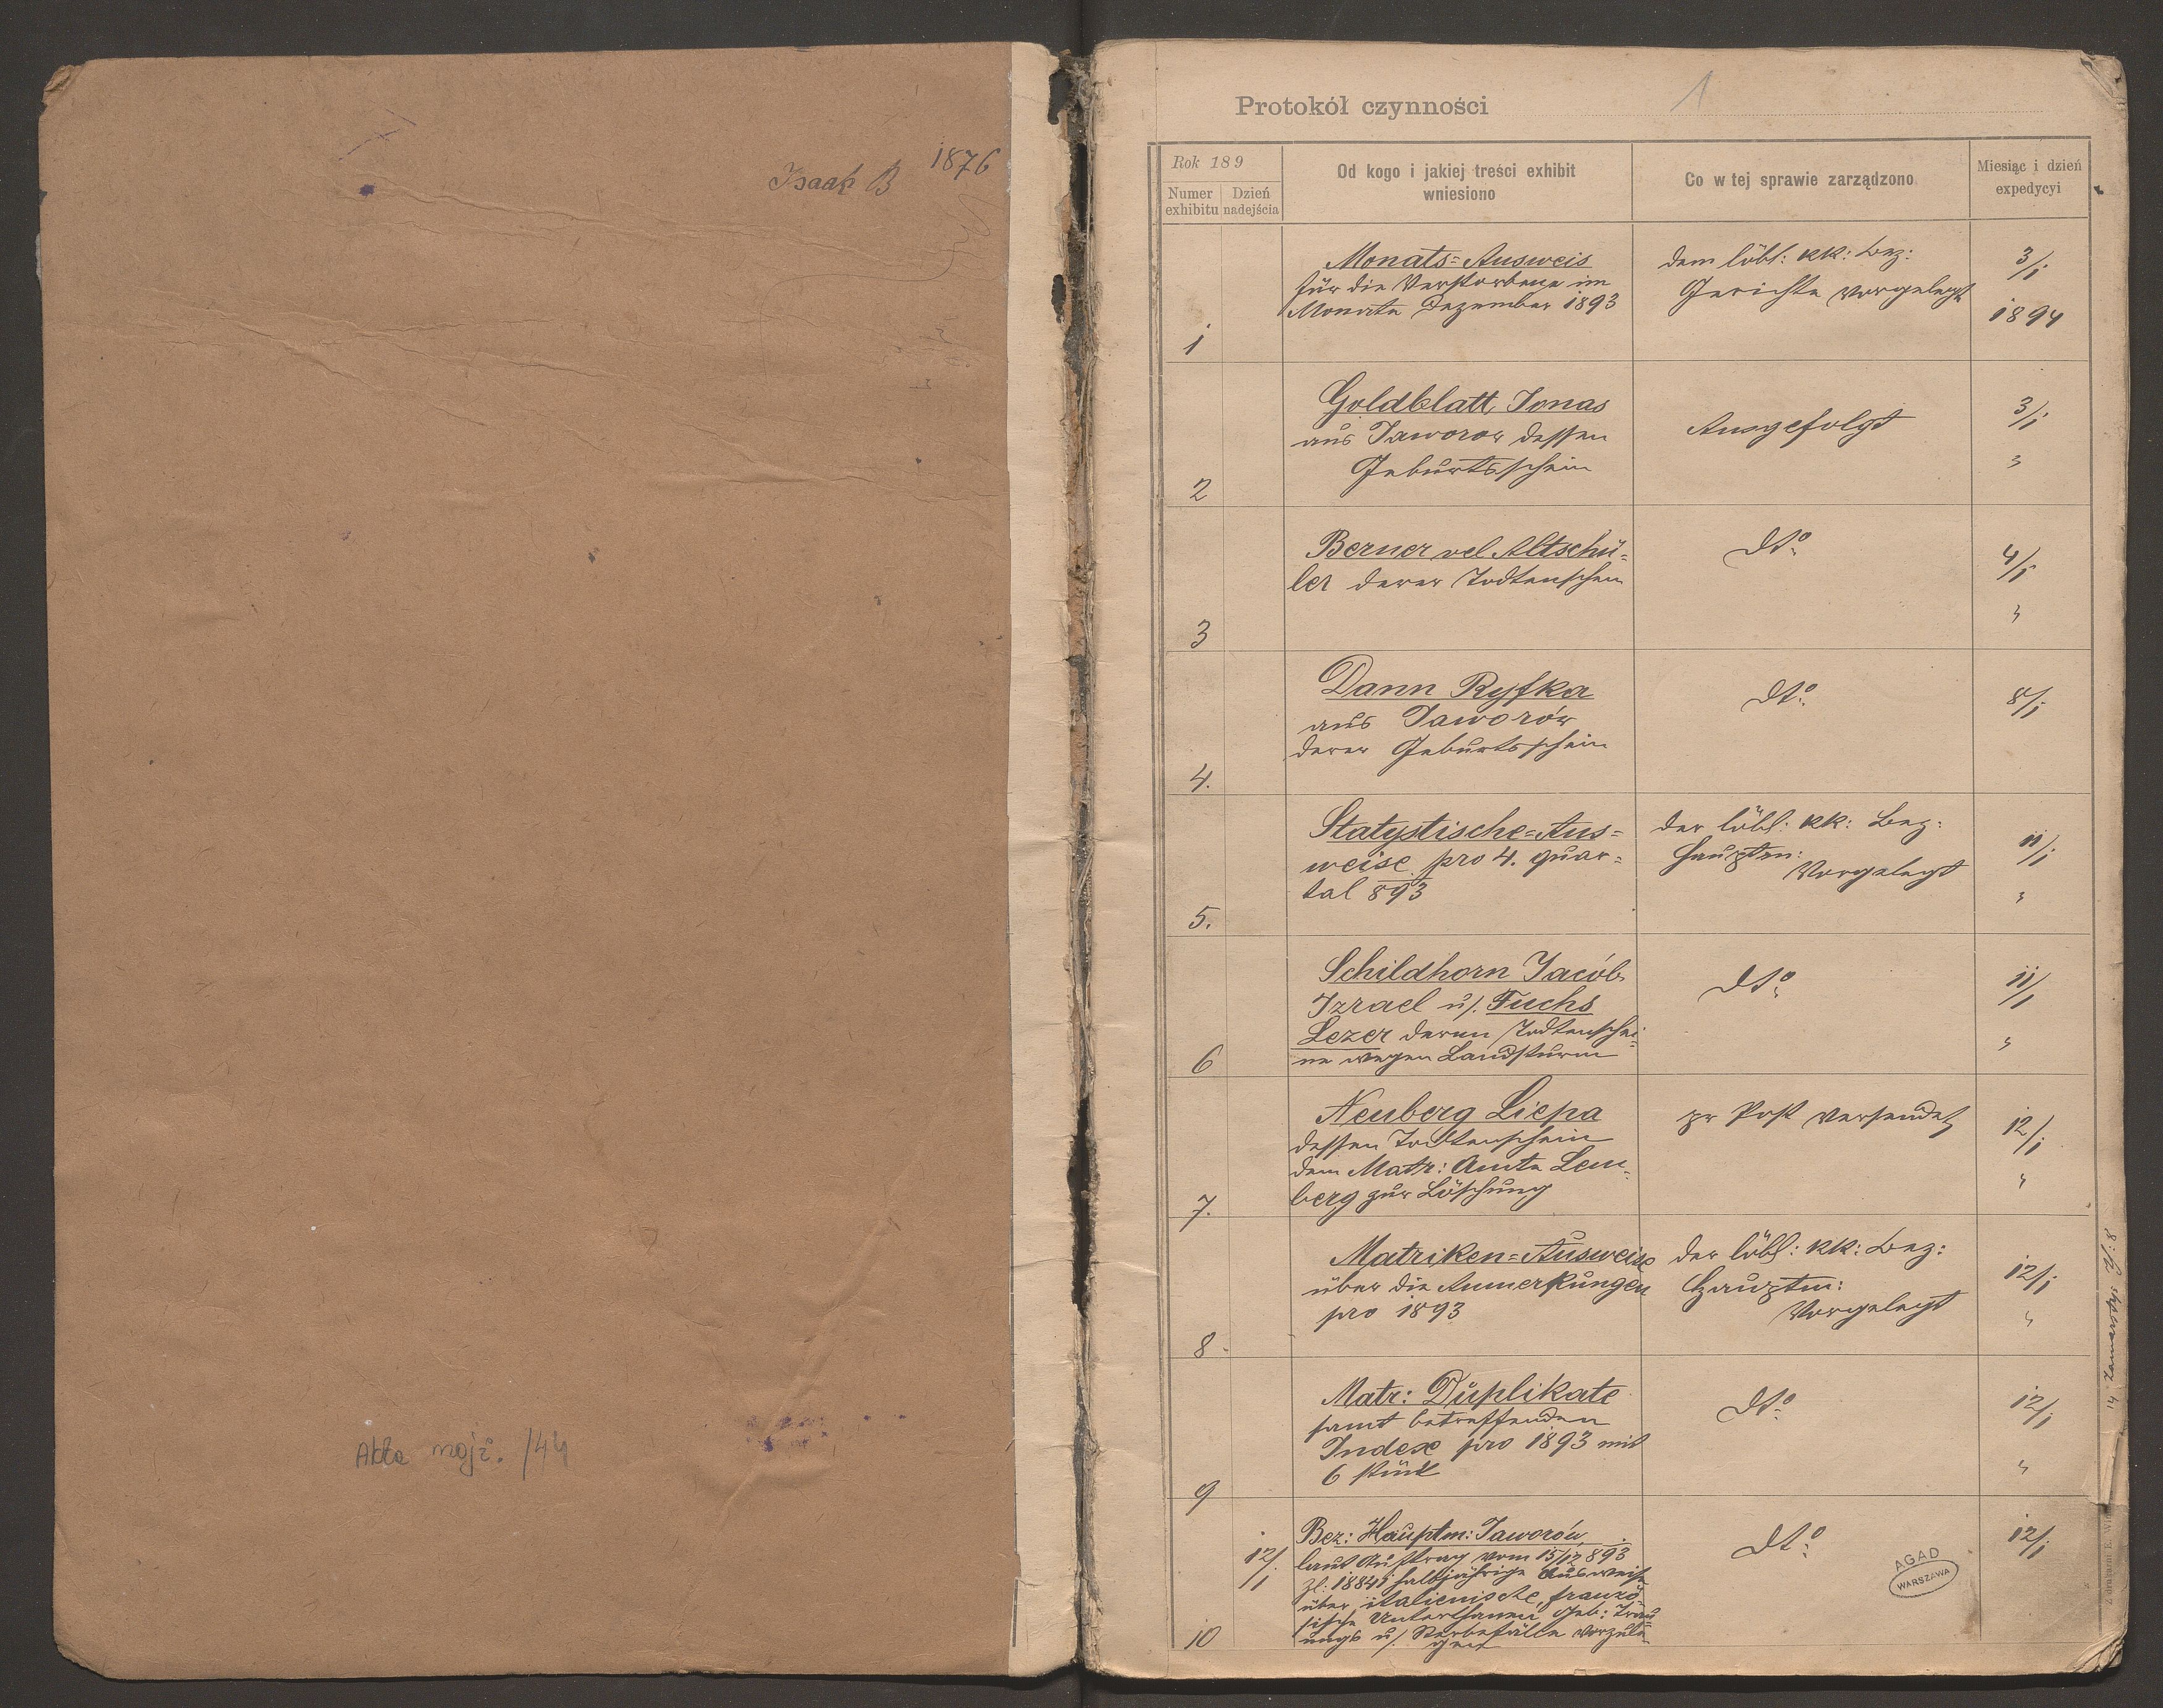 Isaak B
1876
Akta mojż. /44
1
Protokół czynności
Rok 189
Numer exhibitu
Dzień nadejścia
Od kogo i jakiej treści exhibit wniesiono
Co w tej sprawie zarządzono
Miesiąc i dzień expedycyi
1
Monats=Ausweis
für die Verstorbene im
Monate Dezember 1893
dem löbl: kk: Bez:
Gerichte vorgelegt
3/1
1894
2
Goldblatt Jonas
aus Jaworow dessen
Geburtsschein
Ausgefolgt
3/1
"
3
Berner vel Altschü=
ler derer Todtenschein
dto
4/1
"
4.
Dann Ryfka
aus Jaworów
derer Geburtsschein
dto
8/1
5.
Statystische=Aus=
weise pro 4. quar=
tal 893
der löbl: kk: Bez:
Hauptm:
Vorgelegt
11/1
"
6
Schildhorn Jacób
Izrael u/. Fuchs
Lezer deren Todtenschei=
ne wegen Landsturm
dto
11/1
"
7.
Neuberg Liepa
dessen Todtenschein
dem Matr: Amte Lem=
berg zur Löschung
pr Post versendet
12/1
"
8.
Matriken=Ausweise
über die Anmerkungen
pro 1893
der löbl: kk: Bez:
Hauptm:
Vorgelegt
12/1
"
9
Matr: Duplikate
samt betreffenden
Index pro 1893 mit
6 Stück
dto
12/1
"
10
12/1
Bez: Hauptm: Jaworów
laut Auftrag vom 15/12 893
Zl: 18841 halbjährige Ausweise
über italienische, franzö=
sische Unterthanen Geb: Trau=
ungs u/. Sterbefälle vorzule=
gen
dto
12/1
AGAD
WARSZAWA
Z drukarni E. Wi